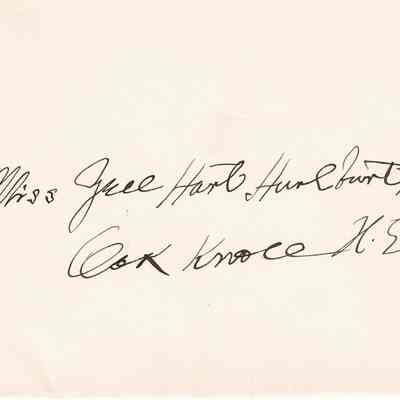 Miss Hart Hurlburt,
Oak Knoll